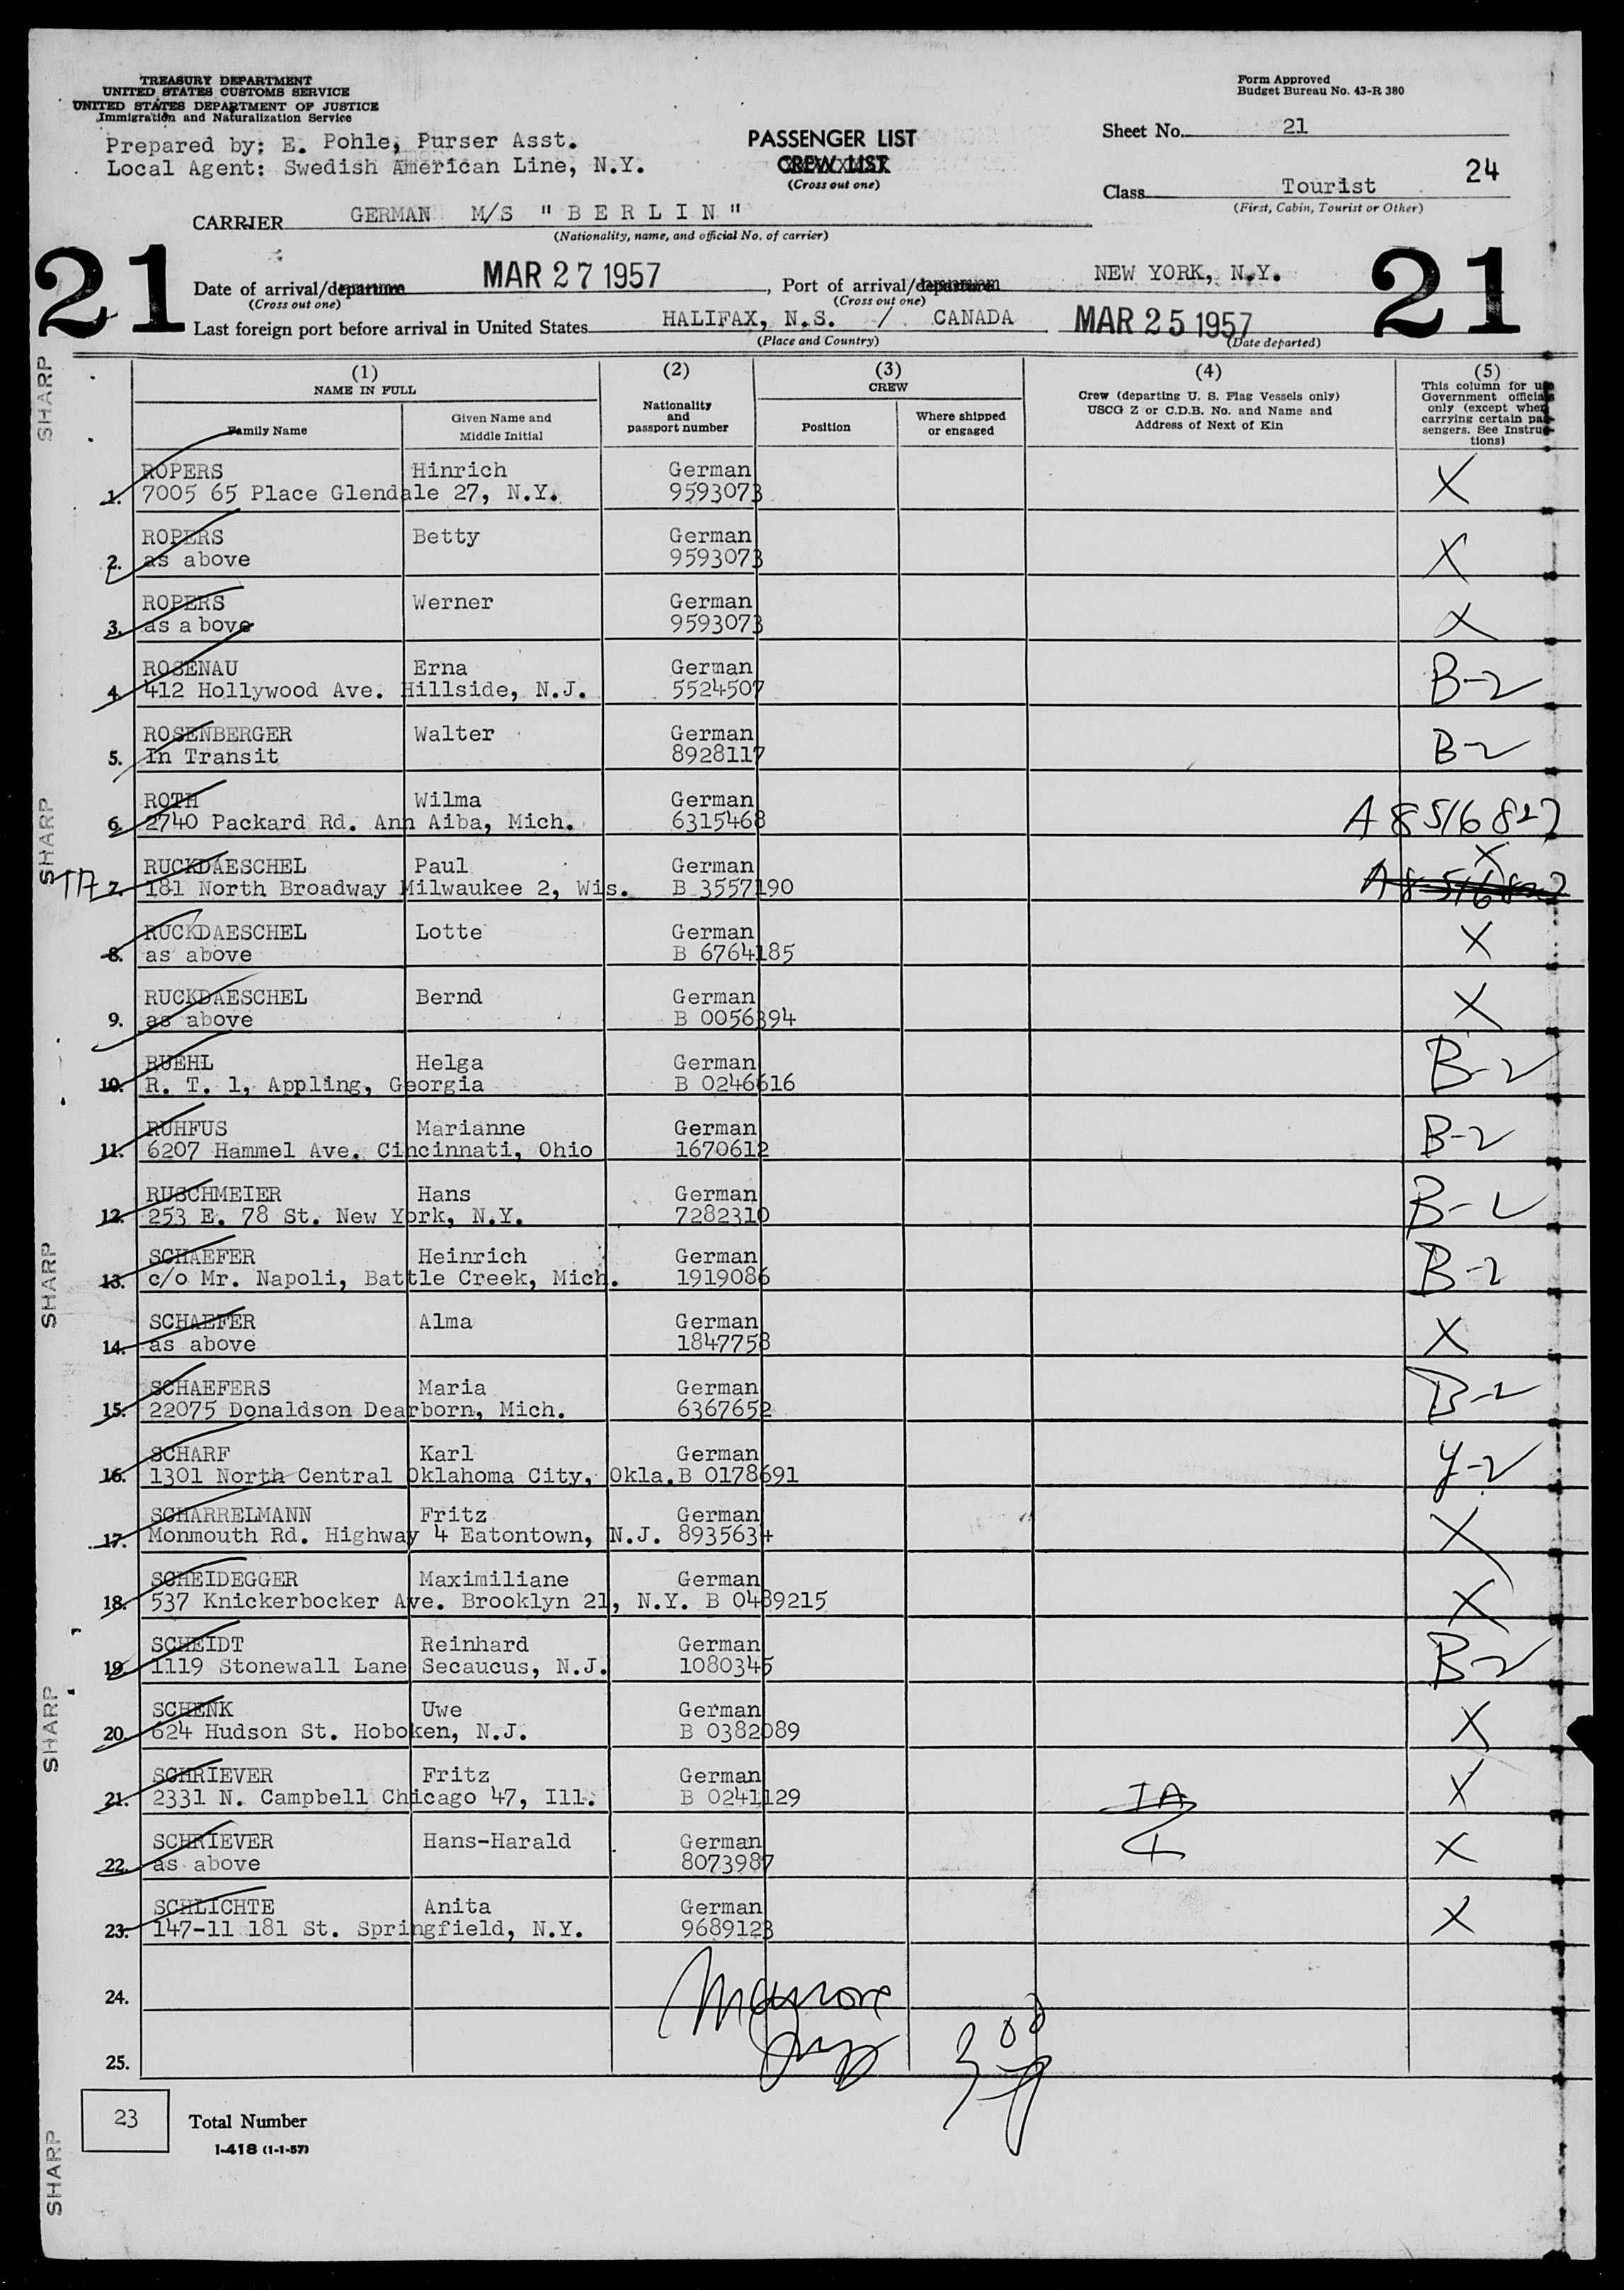 TREASURY DEPARTMENT
UNITED STATES CUSTOMS SERVICE
UNITED STATES DEPARTMENT OF JUSTICE
Immigration and Naturalization Service
Form Approved
Budget Bureau No. 43-R 380
Prepared by: E. Pohle, Purser Asst.
Local Agent: Swedish American Line, N.Y.
PASSENGER LIST
CREW LIST
(Cross out one)
Sheet No. 21
24
Class Tourist
(First, Cabin, Tourist or Other)
CARRIER GERMAN M/S "BERLIN"
(Nationality, name, and official No. of carrier)
21
21
Date of arrival/departure MAR 27 1957, Port of arrival/departure NEW YORK, N.Y.
(Cross out one) (Cross out one)
Last foreign port before arrival in United States HALIFAX, N.S. / CANADA MAR 25 1957
(Place and Country) (Date departed)
(1) NAME IN FULL
Family Name
Given Name and Middle Initial
(2) Nationality and passport number
(3) CREW
Position
Where shipped or engaged
(4) Crew (departing U. S. Flag Vessels only) USCG Z or C.D.B. No. and Name and Address of Next of Kin
(5) This column for use Government officials only (except when carrying certain passengers. See Instructions)
1. ROPERS Hinrich German X
7005 65 Place Glendale 27, N.Y. 9593073
2. ROPERS Betty German X
as above 9593073
3. ROPERS Werner German X
as a bove 9593073
4. ROSENAU Erna German B-2
412 Hollywood Ave. Hillside, N.J. 5524507
5. ROSENBERGER Walter German B-2
In Transit 8928117
6. ROTH Wilma German A 8 516 827
2740 Packard Rd. Ann Aiba, Mich. 6315468
7. RUCKDAESCHEL Paul German X
181 North Broadway Milwaukee 2, Wis. B 3557190
8. RUCKDAESCHEL Lotte German X
as above B 6764185
9. RUCKDAESCHEL Bernd German X
as above B 0056394
10. RUEHL Helga German B-2
R. T. 1, Appling, Georgia B 0246616
11. RUHFUS Marianne German B-2
6207 Hammel Ave. Cincinnati, Ohio 1670612
12. RUSCHMEIER Hans German B-2
253 E. 78 St. New York, N.Y. 7282310
13. SCHAEFER Heinrich German B-2
c/o Mr. Napoli, Battle Creek, Mich. 1919086
14. SCHAEFER Alma German X
as above 1847758
15. SCHAEFERS Maria German B-2
22075 Donaldson Dearborn, Mich. 6367652
16. SCHARF Karl German
1301 North Central Oklahoma City, Okla. B 0178691
17. SCHARRELMANN Fritz German X
Monmouth Rd. Highway 4 Eatontown, N.J. 8935634
18. SCHEIDEGGER Maximiliane German X
537 Knickerbocker Ave. Brooklyn 21, N.Y. B 0489215
19. SCHEIDT Reinhard German B-2
1119 Stonewall Lane Secaucus, N.J. 1080345
20. SCHENK Uwe German X
624 Hudson St. Hoboken, N.J. B 0382089
21. SCHRIEVER Fritz German X
2331 N. Campbell Chicago 47, Ill. B 0241129
22. SCHRIEVER Hans-Harald German X
as above 8073987
23. SCHLICHTE Anita German X
147-11 181 St. Springfield, N.Y. 9689123
24.
25.
23 Total Number
I-418 (1-1-57)
SHARP
SHARP
SHARP
SHARP
SHARP